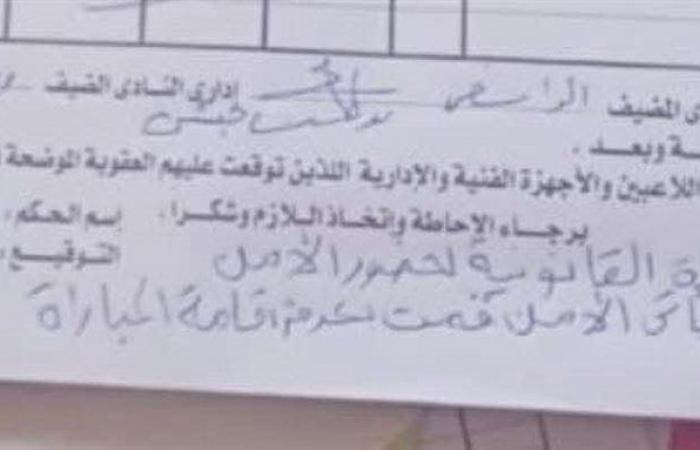 ى المضيف إدارى النادى الضيف
ة وبعد ،
اللاعبين والأجهزة الفنية والإدارية اللذين توقعت عليهم العقوبة الموضحة
برجاء الإحاطة وإتخاذ اللازم وشكرا. إسم الحكم.
ة القانونية لحضور الأمل التوقيع.
الأمل قمت بعدم اقامة المباراة